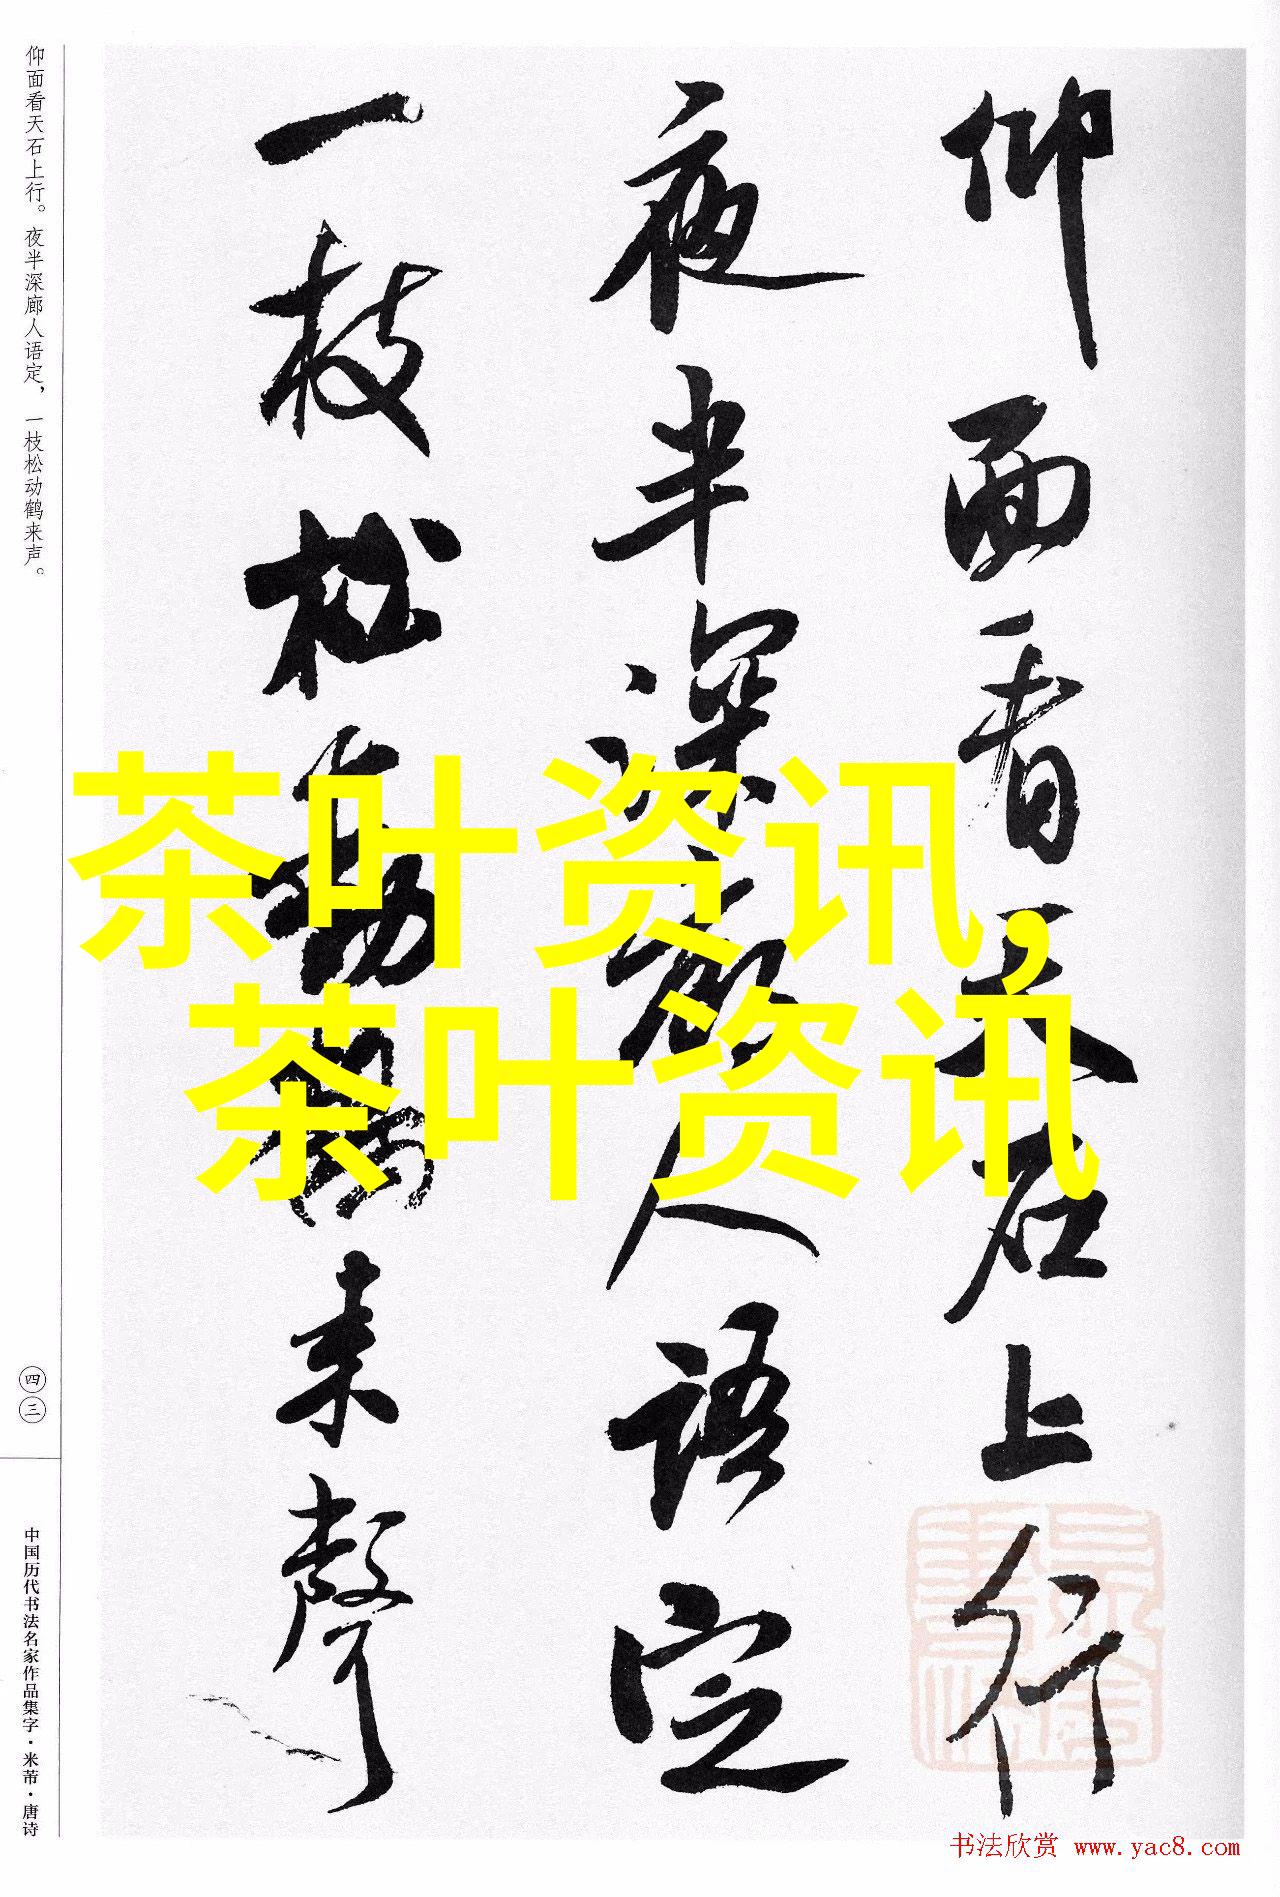 仰面看天石上行
夜半深廊人语定
一枝松動鶴来聲
仰面看天石上行。夜半深廊人语定，一枝松动鹤来声。
四三
中国历代书法名家作品集字·米芾·唐诗
茶叶资讯，
茶叶资讯
书法欣赏 www.yac8.com